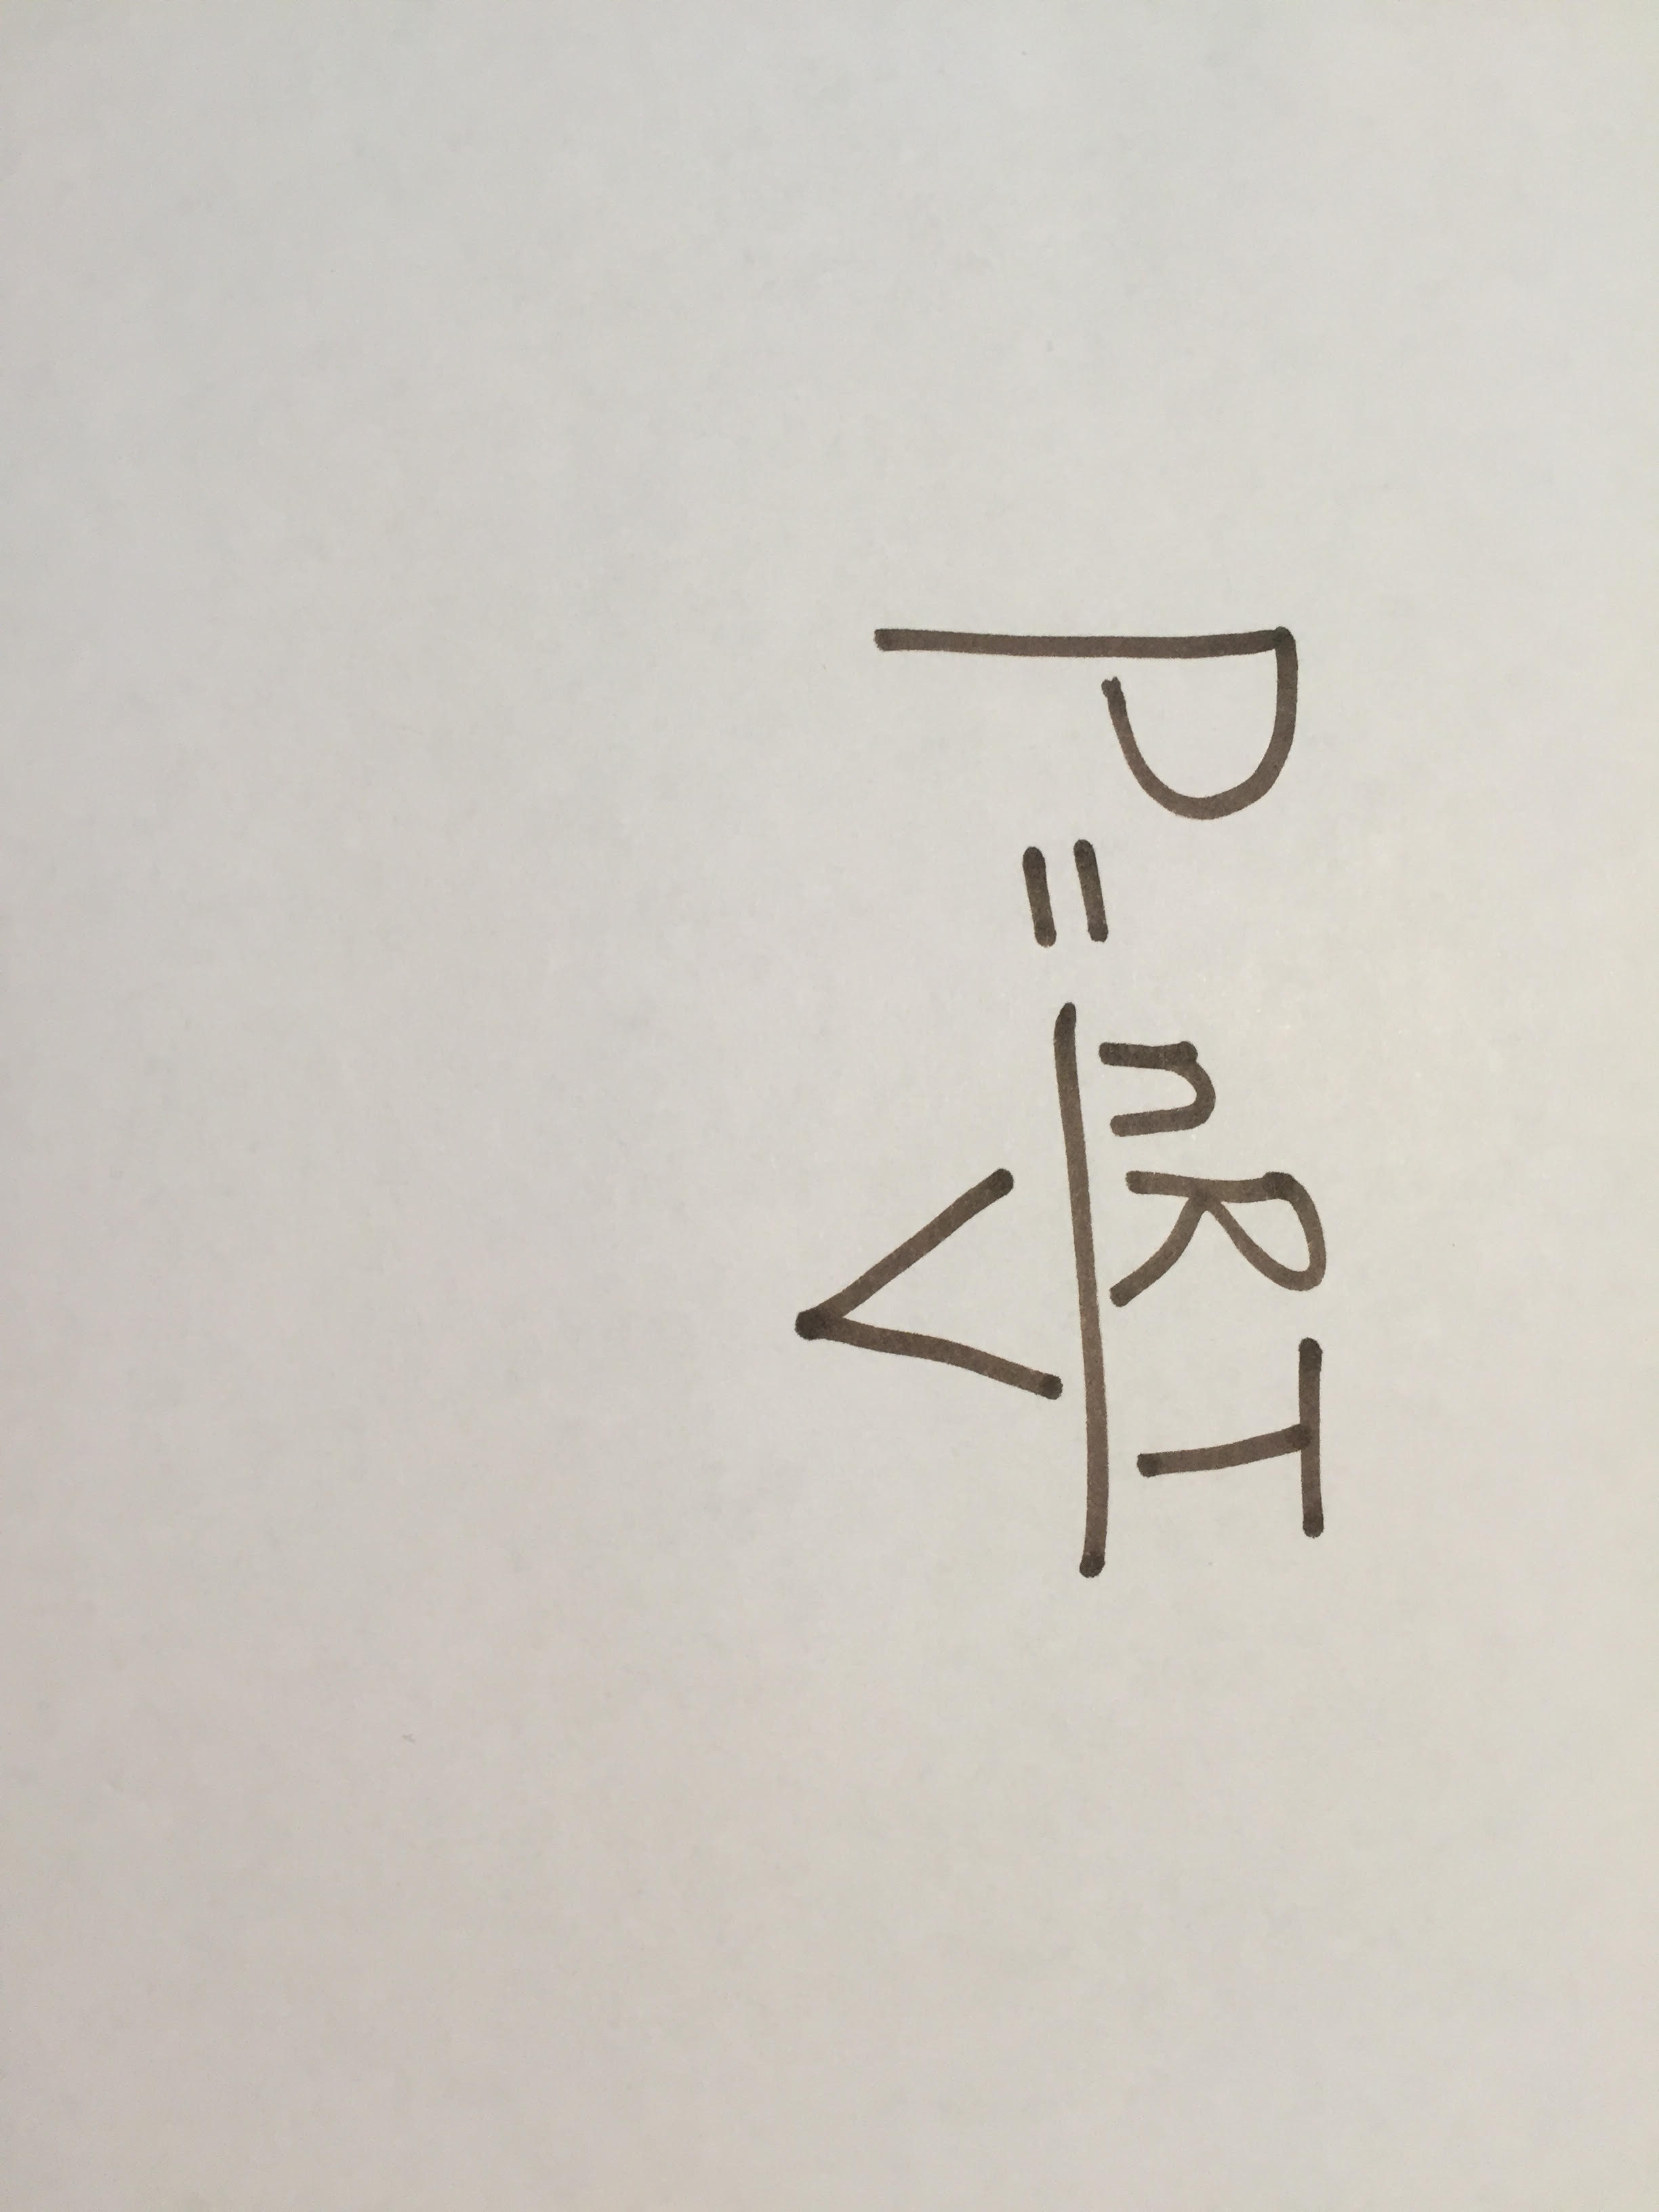 P = nRT / V